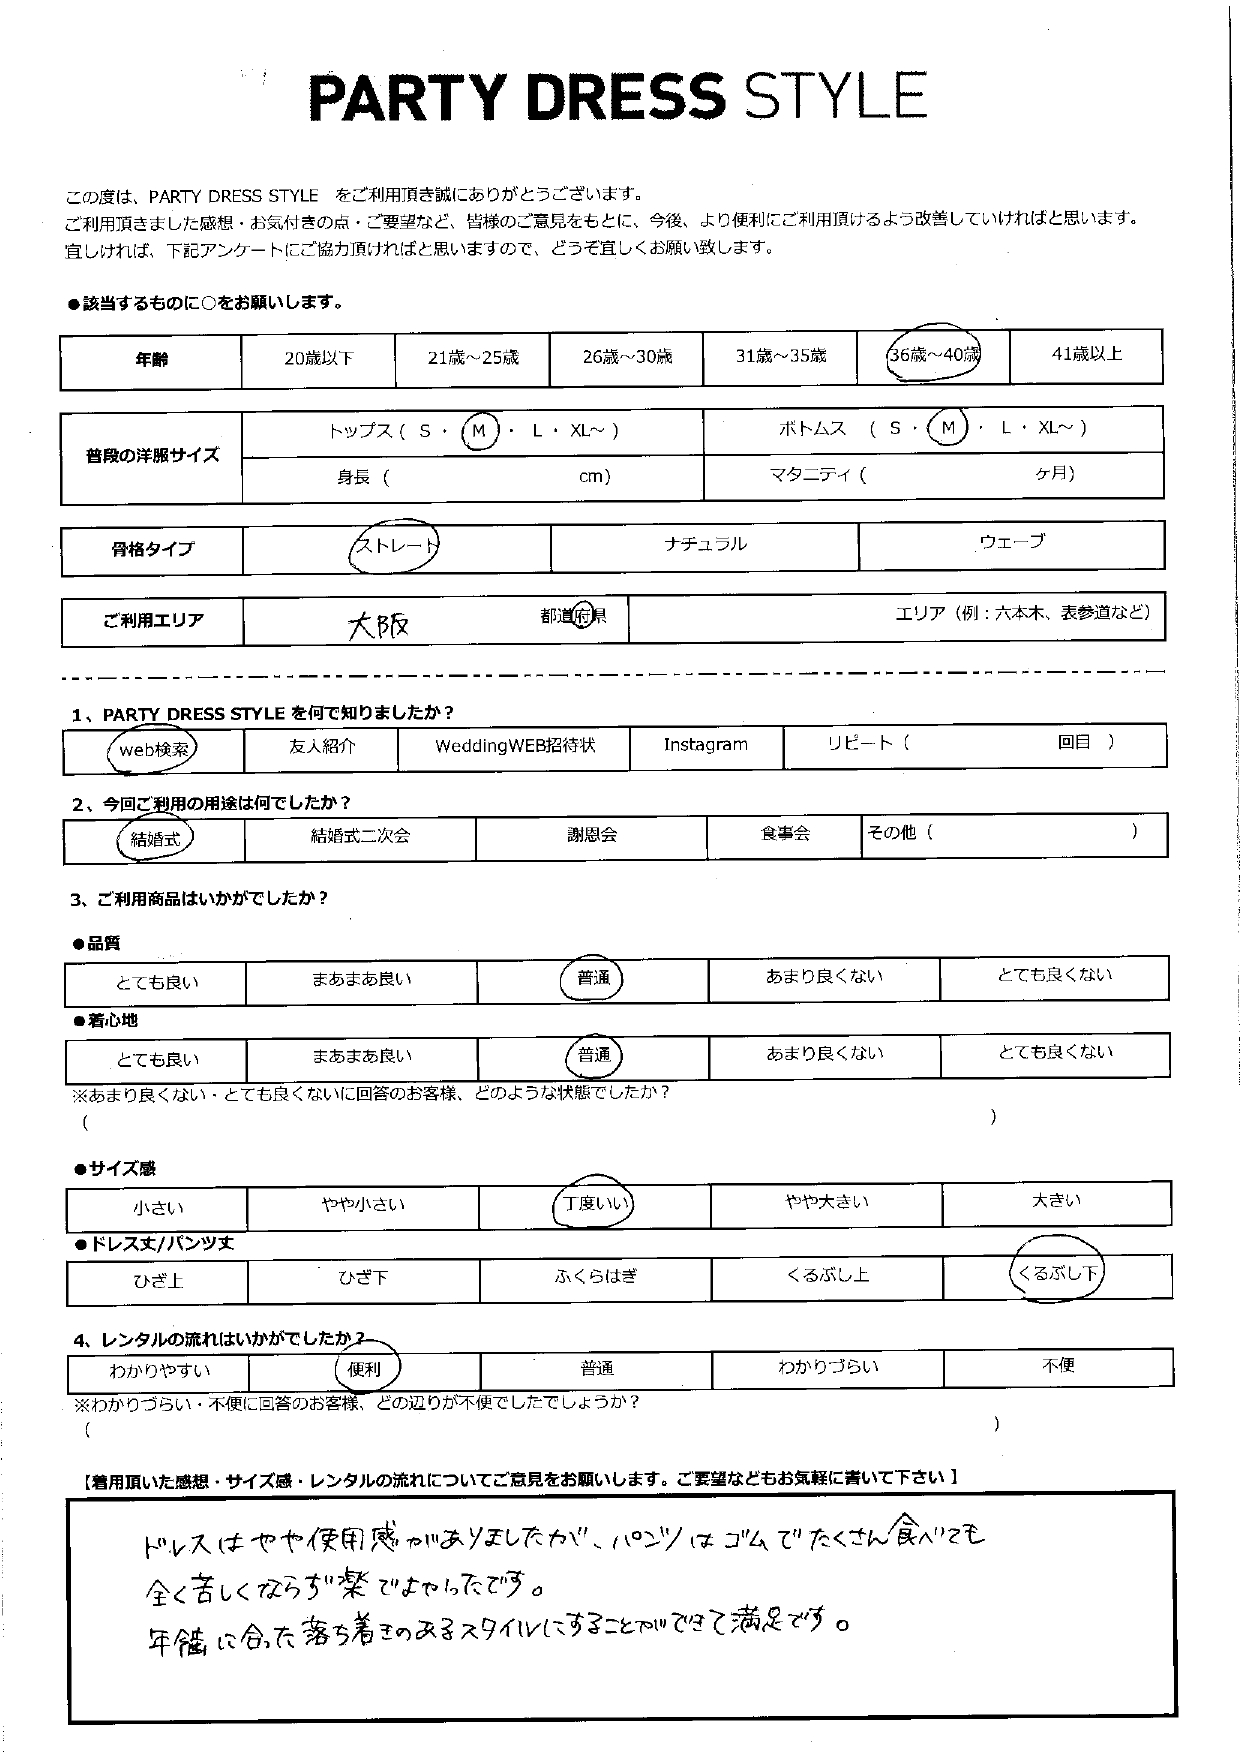 PARTY DRESS STYLE
この度は、PARTY DRESS STYLE をご利用頂き誠にありがとうございます。
ご利用頂きました感想・お気付きの点・ご要望など、皆様のご意見をもとに、今後、より便利にご利用頂けるよう改善していければと思います。
宜しければ、下記アンケートにご協力頂ければと思いますので、どうぞ宜しくお願い致します。
●該当するものに○をお願いします。
年齢 20歳以下 21歳～25歳 26歳～30歳 31歳～35歳 36歳～40歳 41歳以上
普段の洋服サイズ トップス（ S ・ M ・ L ・ XL～ ） ボトムス （ S ・ M ・ L ・ XL～ ）
身長（ cm） マタニティ（ ヶ月）
骨格タイプ ストレート ナチュラル ウェーブ
ご利用エリア 大阪 都道府県 エリア（例：六本木、表参道など）
1、PARTY DRESS STYLE を何で知りましたか？
web検索 友人紹介 WeddingWEB招待状 Instagram リピート（ 回目 ）
2、今回ご利用の用途は何でしたか？
結婚式 結婚式二次会 謝恩会 食事会 その他（ ）
3、ご利用商品はいかがでしたか？
●品質
とても良い まあまあ良い 普通 あまり良くない とても良くない
●着心地
とても良い まあまあ良い 普通 あまり良くない とても良くない
※あまり良くない・とても良くないに回答のお客様、どのような状態でしたか？
（ ）
●サイズ感
小さい やや小さい 丁度いい やや大きい 大きい
●ドレス丈/パンツ丈
ひざ上 ひざ下 ふくらはぎ くるぶし上 くるぶし下
4、レンタルの流れはいかがでしたか？
わかりやすい 便利 普通 わかりづらい 不便
※わかりづらい・不便に回答のお客様、どの辺りが不便でしたでしょうか？
（ ）
【着用頂いた感想・サイズ感・レンタルの流れについてご意見をお願いします。ご要望などもお気軽に書いて下さい】
ドレスはやや使用感がありましたが、パンツはゴムでたくさん食べても
全く苦しくならず楽でよかったです。
年齢に合った落ち着きのあるスタイルにすることができて満足です。